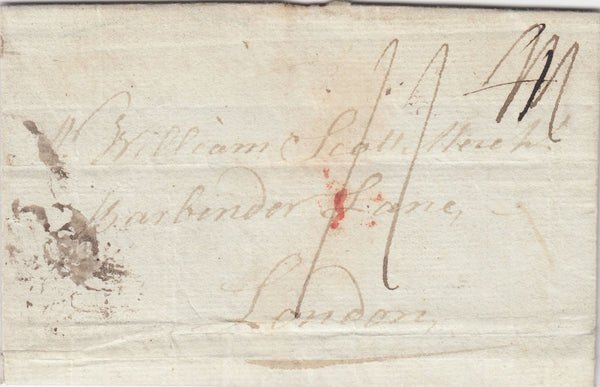 Mr William Scott Mercht
Barbinder Lane,
London,
11